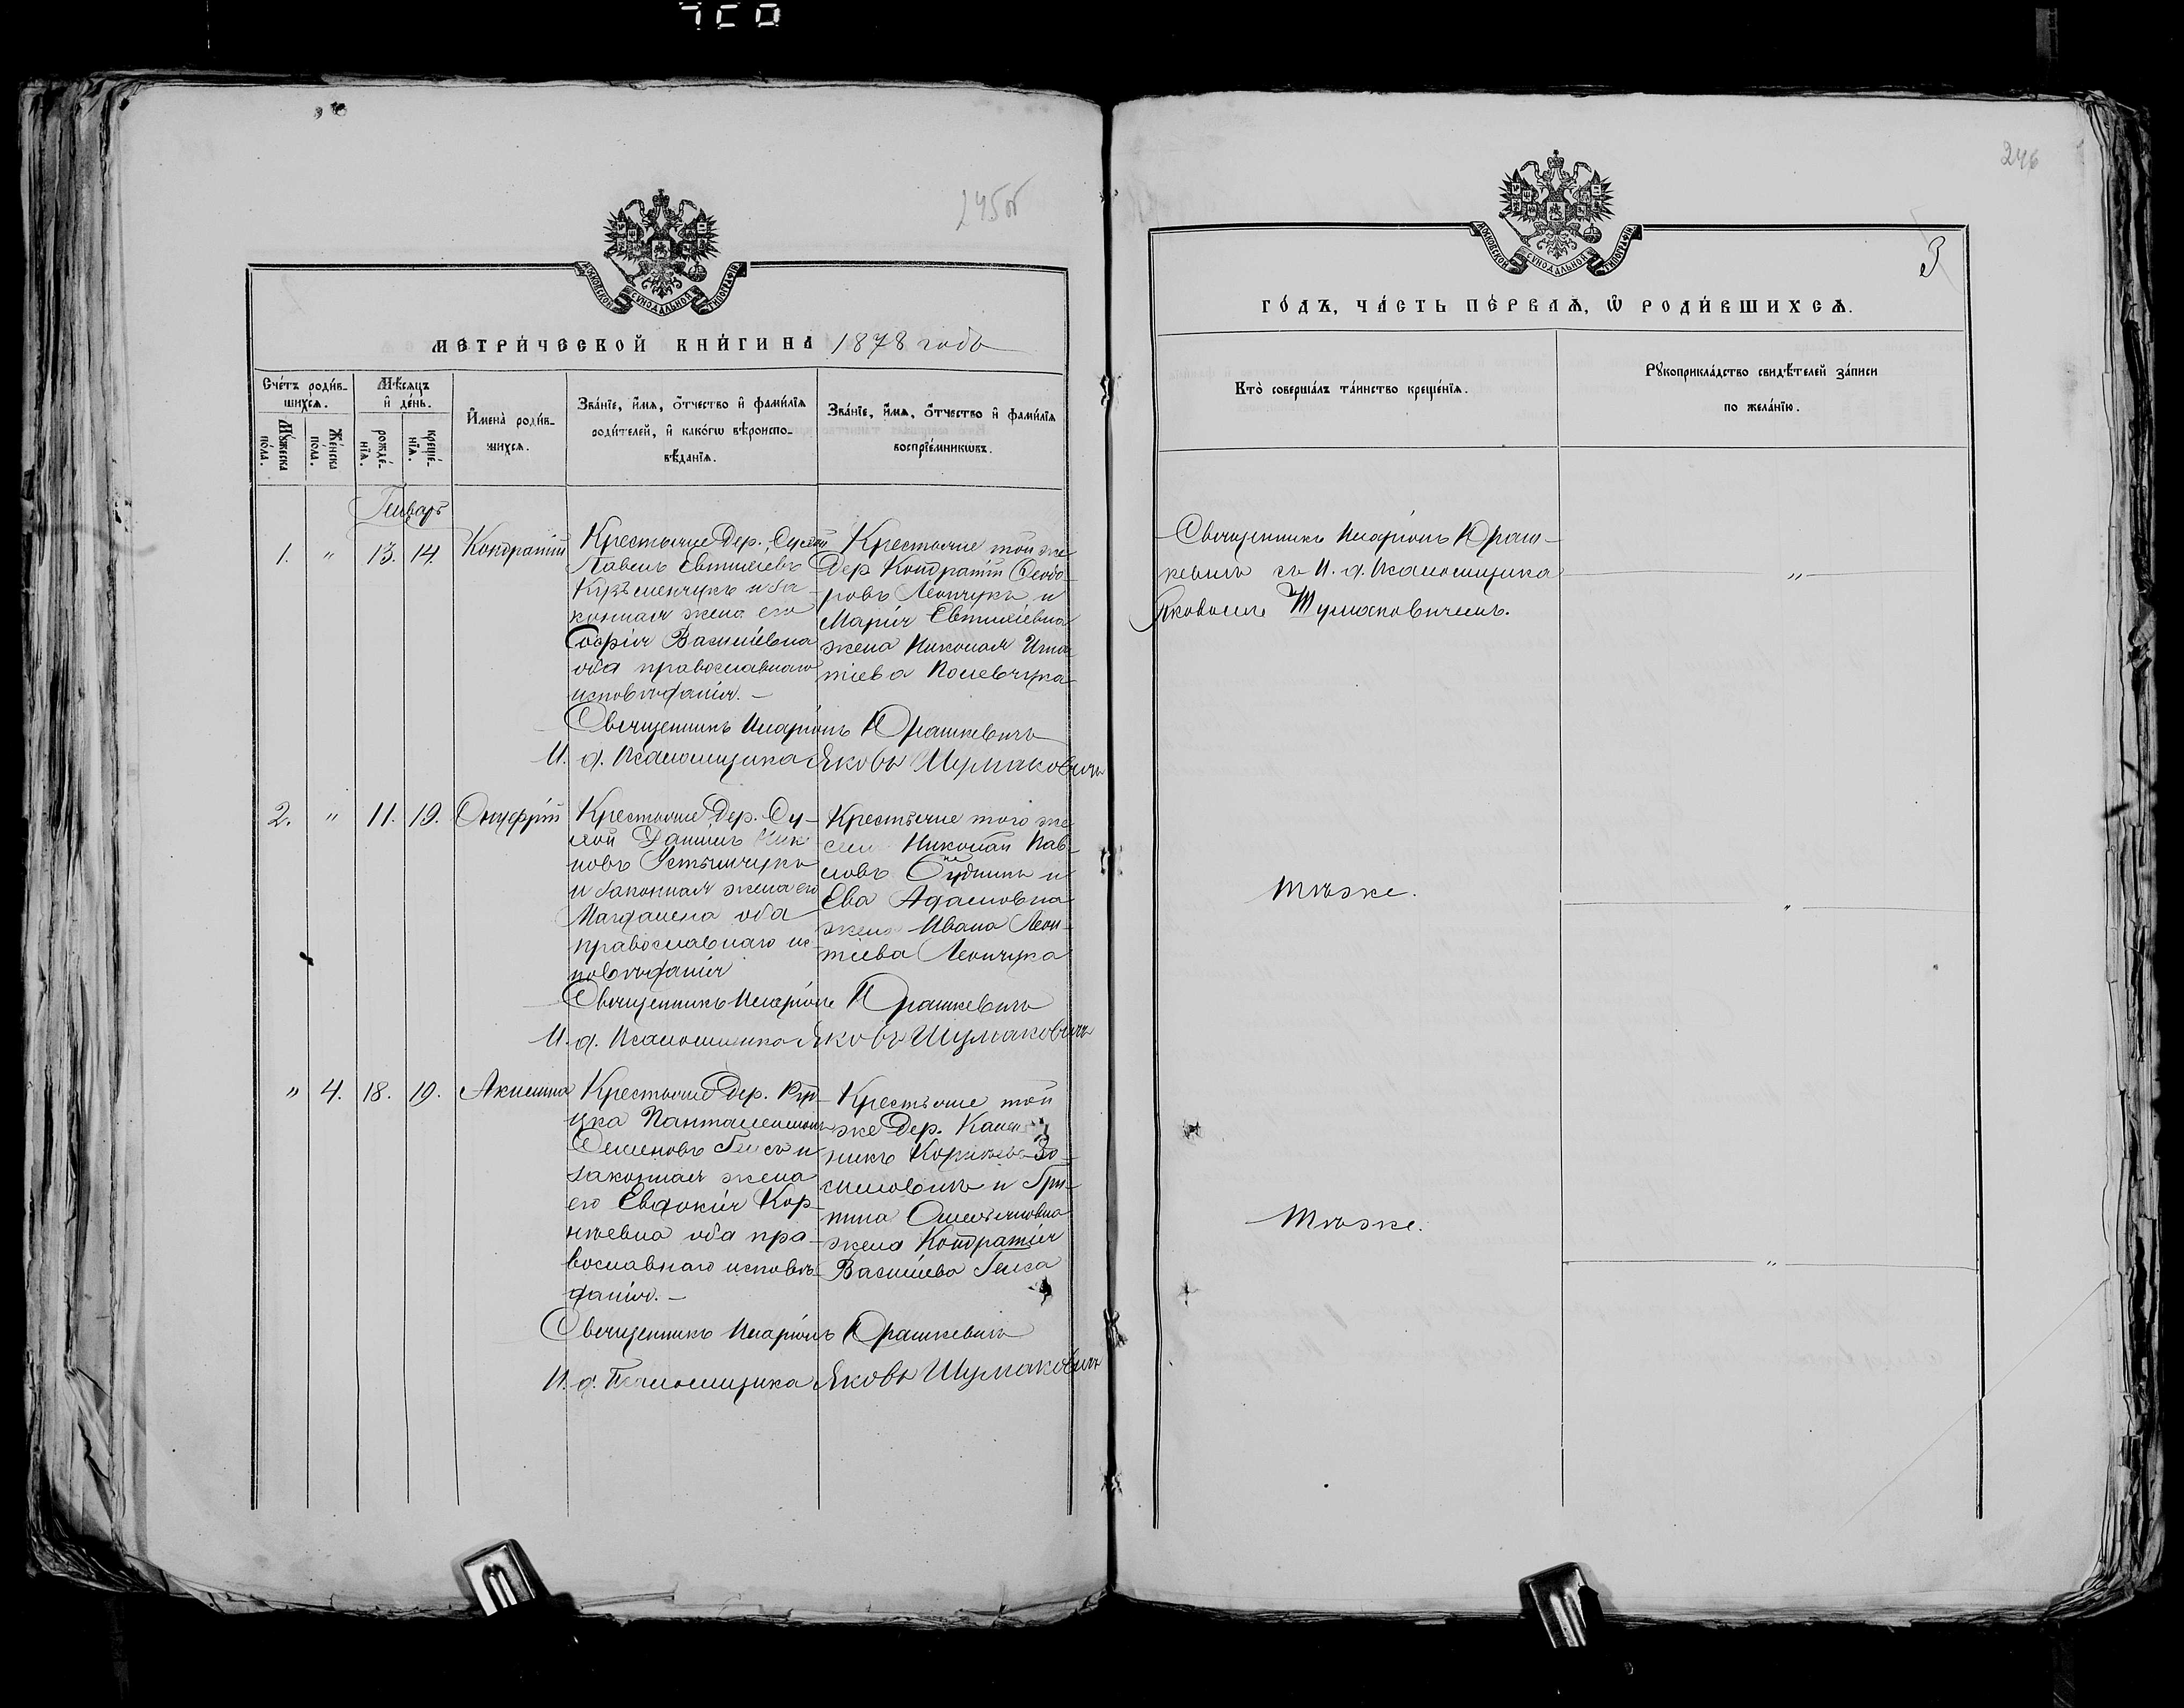 245 об
МОСКОВСКОЙ СѴНОДАЛЬНОЙ ТИПОГРАФІИ
МЕТРИ́ЧЕСКОЙ КНИ́ГИ НА 1878 годъ
Сче́тъ роди́вшихсѧ.
Мѣ́сѧцъ и҆ де́нь.
И҆мена̀ роди́вшихсѧ.
Зва́нїе, и҆́мѧ, ѻ҆́тчество и҆ фами́лїѧ роди́телей, и҆ како́гѡ вѣроисповѣ́данїѧ.
Зва́нїе, и҆́мѧ, ѻ҆́тчество и҆ фами́лїѧ воспрїе́мникѡвъ.
Мꙋ́жеска по́ла.
Же́нска пола.
рожде́нїѧ.
креще́нїѧ.
Генварь
1. " 13. 14. Кондратій
Крестьяне Дер.
Павелъ Евтихіевъ
Кузьменчукъ и за-
конная жена его
Софія Васильевна
оба православнаго
исповѣданія. –
Крестьяне той же
Дер Кондратій Ѳеодо-
ровъ Леончукъ и
Марія Евтихіевна
жена Николая Игна-
тіева Полевчука
Священникъ Иларіонъ Юрашкевичъ
И. д. Псаломщика Яковъ Шумаковичъ
2. " 11. 19. Онуфрій
Крестьяне Дер. Су-
хой Даніилъ
новъ Устымчукъ
и законная жена его
Магдалена оба
православнаго ис-
повѣданія
Крестьяне того же
села Николай Пав-
ловъ и
Ева Адамовна
жена Ивана Леон-
тіева Леончука
Священникъ Иларіонъ Юрашкевичъ
И. д. Псаломщика Яковъ Шумаковичъ
" 4. 18. 19. Акилина
Крестьяне Дер.
Пантелеимонъ
Семеновъ и
законная жена
его Евдокія Кор-
нѣевна оба пра-
вославнаго исповѣ-
данія. –
Крестьяне той
же Дер.
и
жена Кондратія
Васильева Гейса
Священникъ Иларіонъ Юрашкевичъ
И. д. Псаломщика Яковъ Шумаковичъ
246
3
МОСКОВСКОЙ СѴНОДАЛЬНОЙ ТИПОГРАФІИ
ГО́ДЪ, ЧА́СТЬ ПЕ́РВАѦ, Ѿ РОДИ́ВШИХСѦ.
Кто̀ соверша́лъ та́инство креще́нїѧ.
Рꙋкоприкла́дство свидѣ́телей за́писи по жела́нїю.
Священникъ Иларіонъ Юраш-
кевичъ съ И. д. Псаломщика "
Яковомъ Шумаковичемъ.
Тѣже. "
Тѣже. "